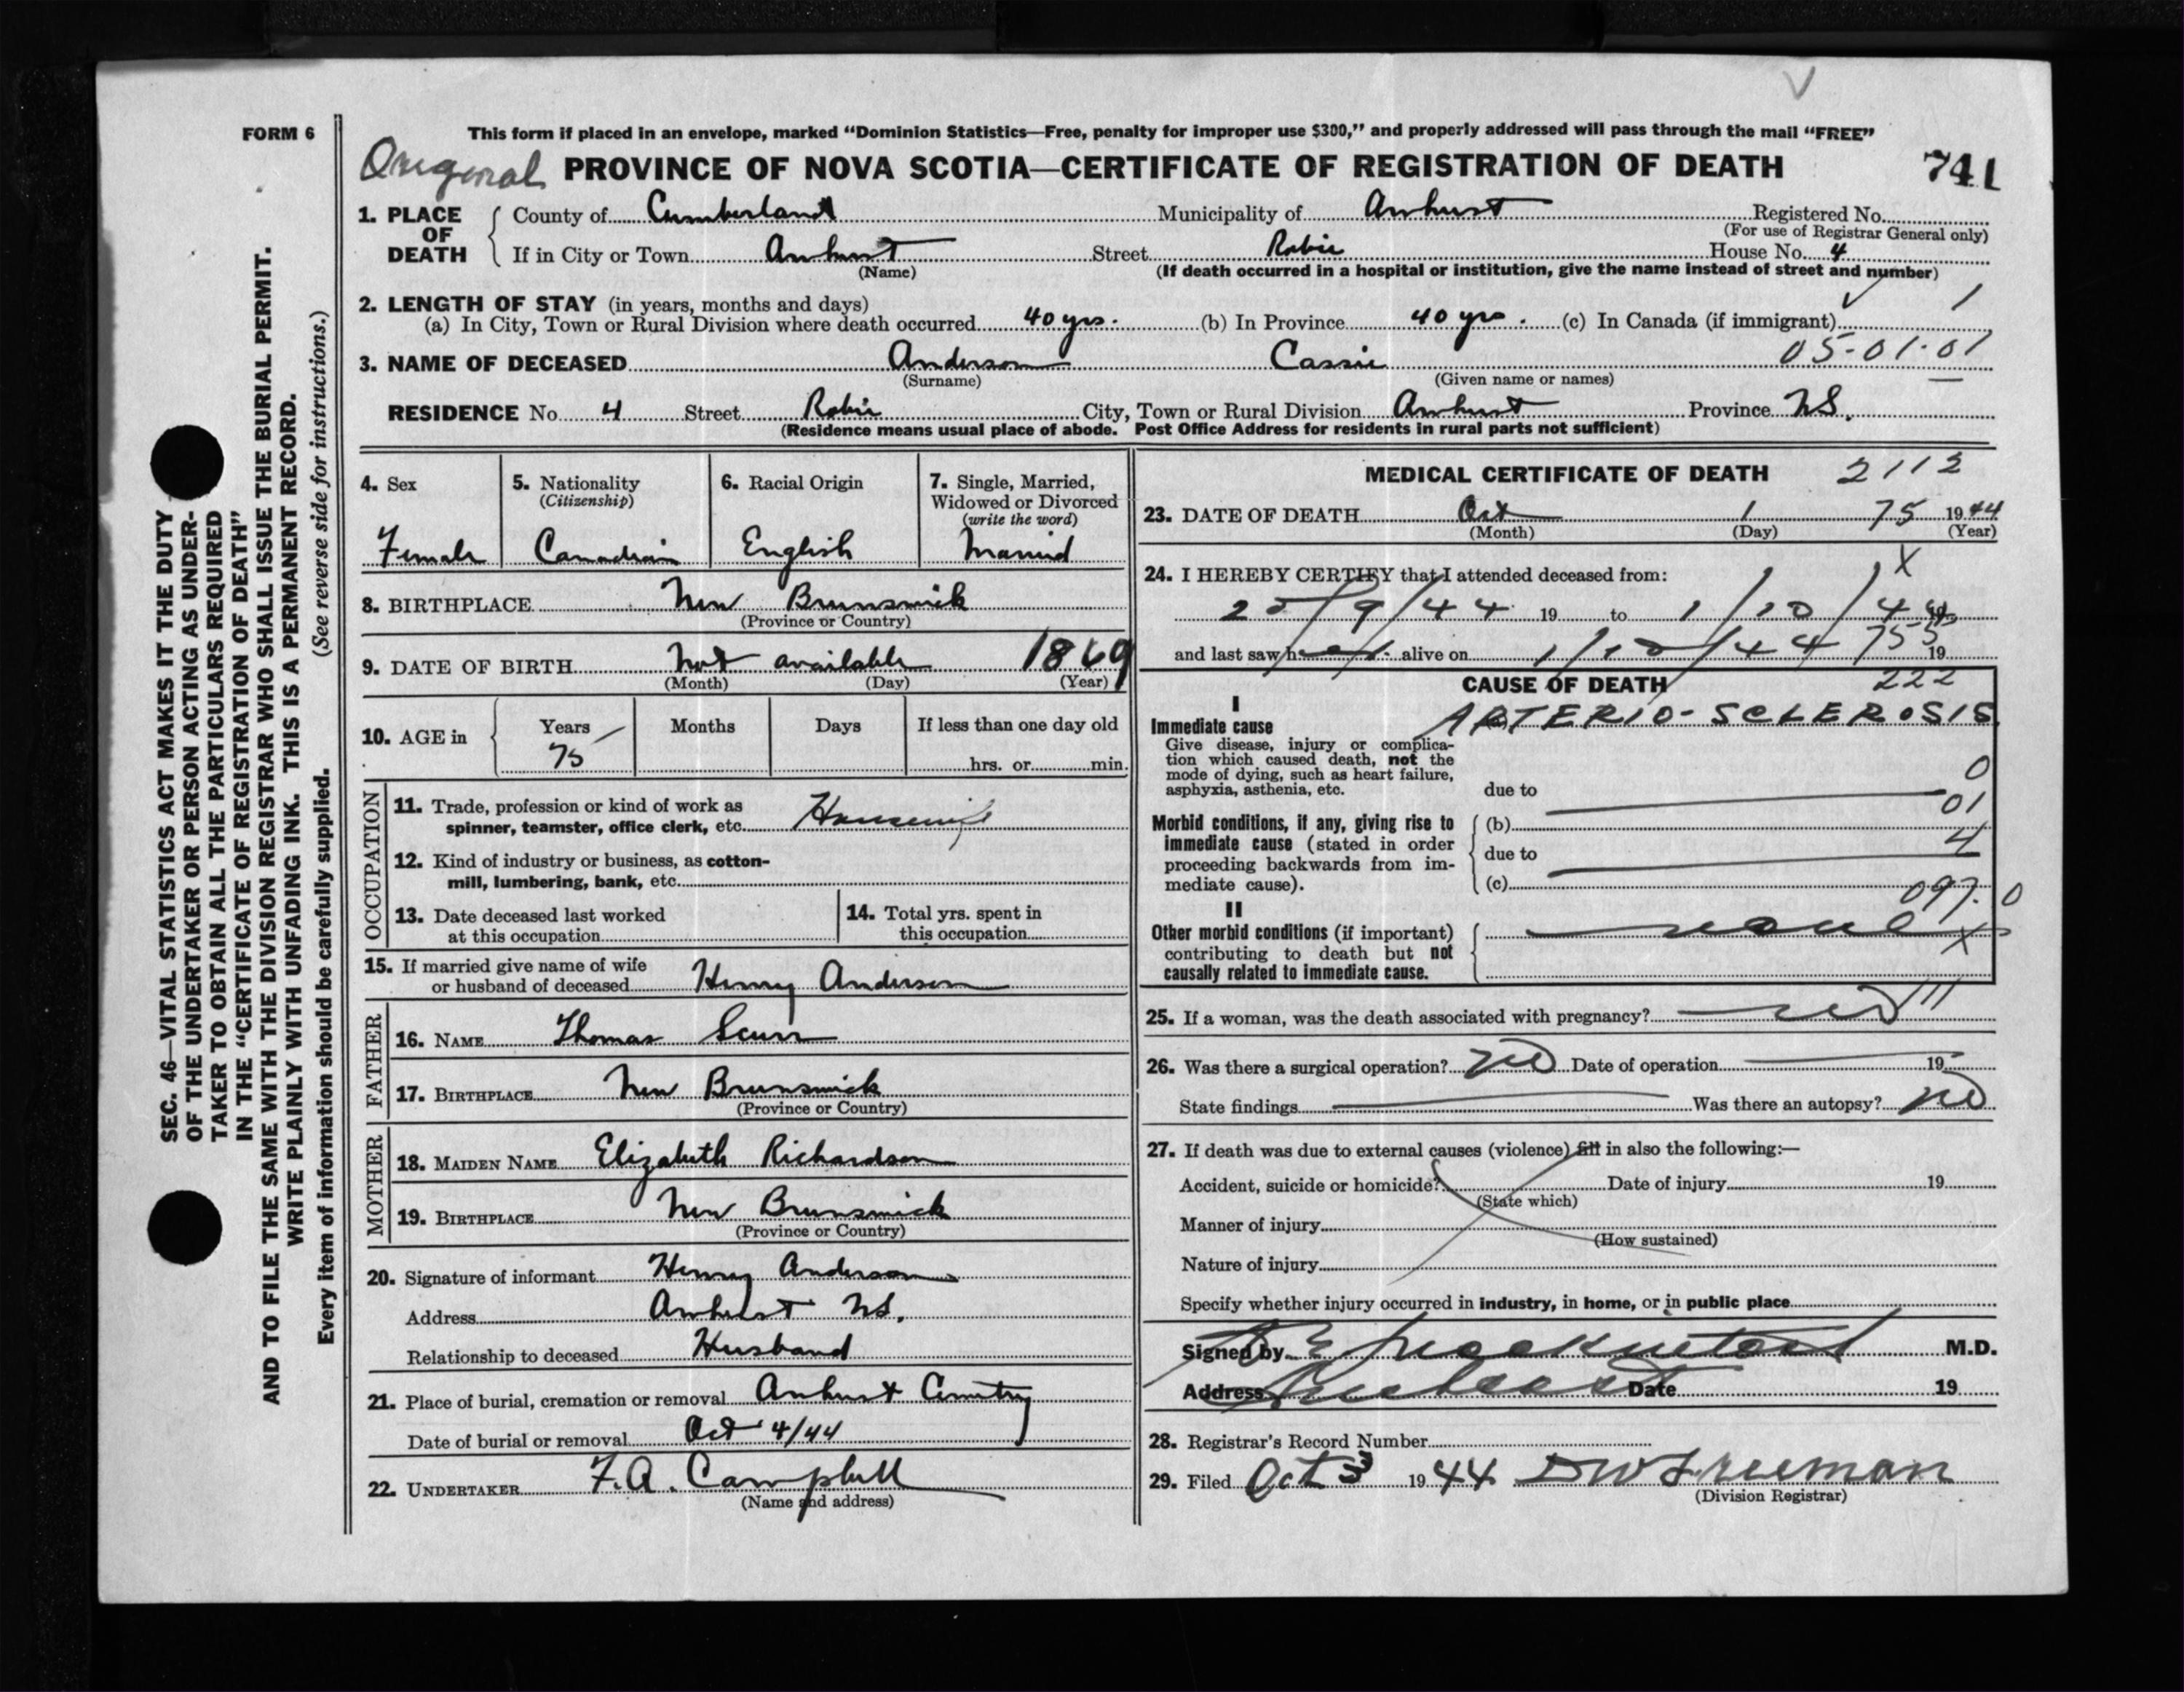 FORM 6
This form if placed in an envelope, marked “Dominion Statistics—Free, penalty for improper use $300,” and properly addressed will pass through the mail “FREE”
Original PROVINCE OF NOVA SCOTIA—CERTIFICATE OF REGISTRATION OF DEATH 741
1. PLACE OF DEATH
County of Cumberland Municipality of Amherst Registered No.
(For use of Registrar General only)
If in City or Town Amherst Street Robie House No. 4
(Name) (If death occurred in a hospital or institution, give the name instead of street and number)
2. LENGTH OF STAY (in years, months and days) 1
(a) In City, Town or Rural Division where death occurred 40 yrs. (b) In Province 40 yrs. (c) In Canada (if immigrant)
05-01-01
3. NAME OF DECEASED Anderson Cassie
(Surname) (Given name or names)
RESIDENCE No. 4 Street Robie City, Town or Rural Division Amherst Province N.S.
(Residence means usual place of abode. Post Office Address for residents in rural parts not sufficient)
4. Sex
Female
5. Nationality
(Citizenship)
Canadian
6. Racial Origin
English
7. Single, Married,
Widowed or Divorced
(write the word)
Married
8. BIRTHPLACE New Brunswick
(Province or Country)
9. DATE OF BIRTH Not available 1869
(Month) (Day) (Year)
10. AGE in
Years Months Days If less than one day old
75 hrs. or min.
OCCUPATION
11. Trade, profession or kind of work as
spinner, teamster, office clerk, etc. Housewife
12. Kind of industry or business, as cotton-
mill, lumbering, bank, etc.
13. Date deceased last worked
at this occupation
14. Total yrs. spent in
this occupation
15. If married give name of wife
or husband of deceased Henry Anderson
FATHER
16. NAME Thomas Scurr
17. BIRTHPLACE New Brunswick
(Province or Country)
MOTHER
18. MAIDEN NAME Elizabeth Richardson
19. BIRTHPLACE New Brunswick
(Province or Country)
20. Signature of informant Henry Anderson
Address Amherst N.S.
Relationship to deceased Husband
21. Place of burial, cremation or removal Amherst Cemetry
Date of burial or removal Oct 4/44
22. UNDERTAKER F.A. Campbell
(Name and address)
MEDICAL CERTIFICATE OF DEATH 2112
23. DATE OF DEATH Oct 1 75 1944
(Month) (Day) (Year)
24. I HEREBY CERTIFY that I attended deceased from: X
/9/44 19 to 1/10/44
and last saw her alive on 1/10/44 755 19
CAUSE OF DEATH 222
I
Immediate cause (a) ARTERIO-SCLEROSIS
Give disease, injury or complica-
tion which caused death, not the
mode of dying, such as heart failure,
asphyxia, asthenia, etc. due to 0
01
Morbid conditions, if any, giving rise to
immediate cause (stated in order
proceeding backwards from im-
mediate cause).
(b)
due to 4
(c)
097.0
II
Other morbid conditions (if important)
contributing to death but not
causally related to immediate cause.
none X
25. If a woman, was the death associated with pregnancy? no 111
26. Was there a surgical operation? no Date of operation 19
State findings Was there an autopsy? no
27. If death was due to external causes (violence) fill in also the following:—
Accident, suicide or homicide? Date of injury 19
(State which)
Manner of injury
(How sustained)
Nature of injury
Specify whether injury occurred in industry, in home, or in public place
Signed by Mackintosh M.D.
Address Amherst Date 19
28. Registrar's Record Number
29. Filed Oct 3 1944 D W Freeman
(Division Registrar)
SEC. 46—VITAL STATISTICS ACT MAKES IT THE DUTY
OF THE UNDERTAKER OR PERSON ACTING AS UNDER-
TAKER TO OBTAIN ALL THE PARTICULARS REQUIRED
IN THE “CERTIFICATE OF REGISTRATION OF DEATH”
AND TO FILE THE SAME WITH THE DIVISION REGISTRAR WHO SHALL ISSUE THE BURIAL PERMIT.
WRITE PLAINLY WITH UNFADING INK. THIS IS A PERMANENT RECORD.
Every item of information should be carefully supplied. (See reverse side for instructions.)